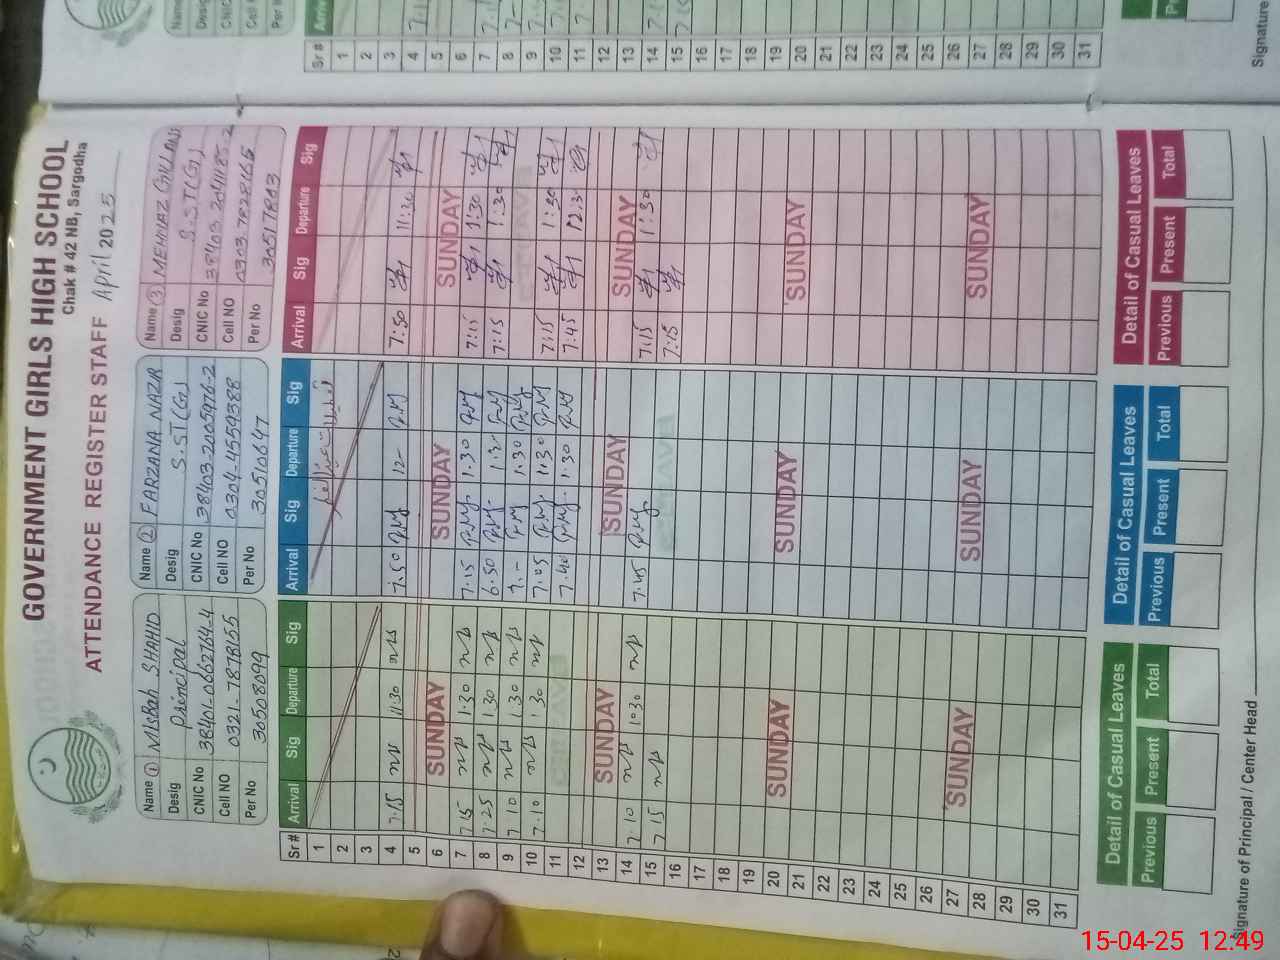 GOVERNMENT GIRLS HIGH SCHOOL
Chak # 42 NB, Sargodha
ATTENDANCE REGISTER STAFF April 2025
Name ① Misbah SHAHID
Desig Principal
CNIC No 38401-0662764-4
Cell NO 0321-7878155
Per No 30508099
Name ② FARZANA NAZIR
Desig S.ST(G)
CNIC No 38403-2005976-2
Cell NO 0304-4559388
Per No 30510647
Name ③ MEHNAZ GILLANI
Desig S.ST(G)
CNIC No
Cell NO 0303.7828165
Per No 30517843
Sr # Arrival Sig Departure Sig Arrival Sig Departure Sig Arrival Sig Departure Sig
1
2
3
4 7.15 11:30 7.50 12- 7:50 11:30
5
6 SUNDAY SUNDAY SUNDAY
7 7.15 1.30 7.15 1.30 7:15 1:30
8 7.25 1.30 6.50 7:15 1:30
9 7.10 1.30 7.- 1.30
10 7.10 1.30 7.05 1.30 7:15 1:30
11 7.40 1.30 7:45 12.30
12
13 SUNDAY SUNDAY SUNDAY
14 7.10 1.30 7.45 7:15 1:30
15 7.15 7:15
16
17
18
19
20 SUNDAY SUNDAY SUNDAY
21
22
23
24
25
26
27 SUNDAY SUNDAY SUNDAY
28
29
30
31
Detail of Casual Leaves Detail of Casual Leaves Detail of Casual Leaves
Previous Present Total Previous Present Total Previous Present Total
Signature of Principal / Center Head
Sr #
1
2
3
4
5
6
7
8
9
10
11
12
13
14
15
16
17
18
19
20
21
22
23
24
25
26
27
28
29
30
31
15-04-25 12:49